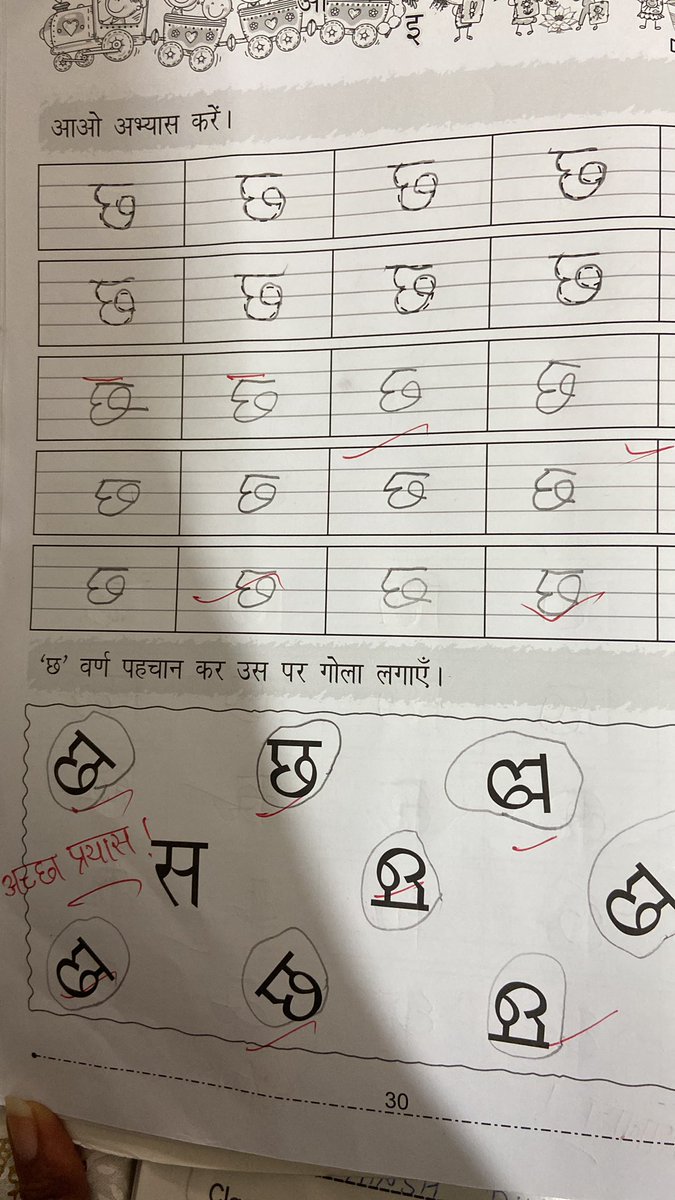 इ
आओ अभ्यास करें।
छ छ छ छ
छ छ छ छ
छ छ छ छ
छ छ छ छ
छ छ छ छ
'छ' वर्ण पहचान कर उस पर गोला लगाएँ।
छ छ छ
अच्छा प्रयास!
स छ छ
छ छ छ
30